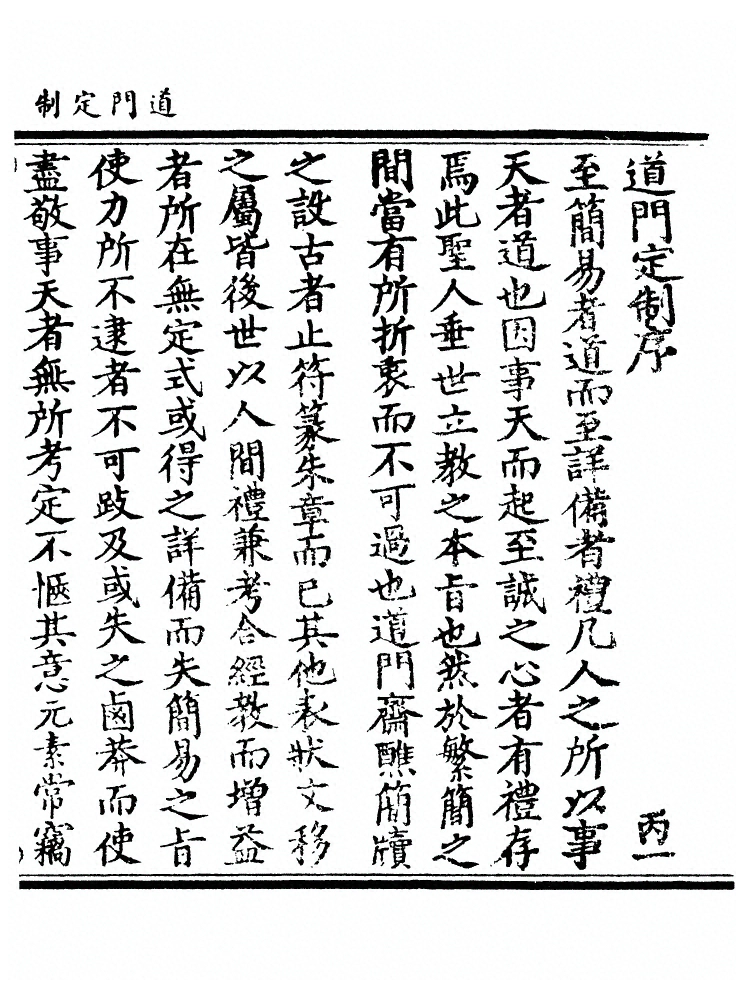 道門定制
道門定制序 丙一
至簡易者道而至詳備者禮凡人之所以事
天者道也因事天而起至誠之心者有禮存
焉此聖人垂世立教之本旨也然於繁簡之
間當有所折衷而不可過也道門齋醮簡牘
之設古者止符篆朱章而已其他表狀文移
之屬皆後世以人間禮兼考合經教而增益
者所在無定式或得之詳備而失簡易之旨
使力所不逮者不可跂及或失之鹵莽而使
盡敬事天者無所考定不愜其意元素常竊